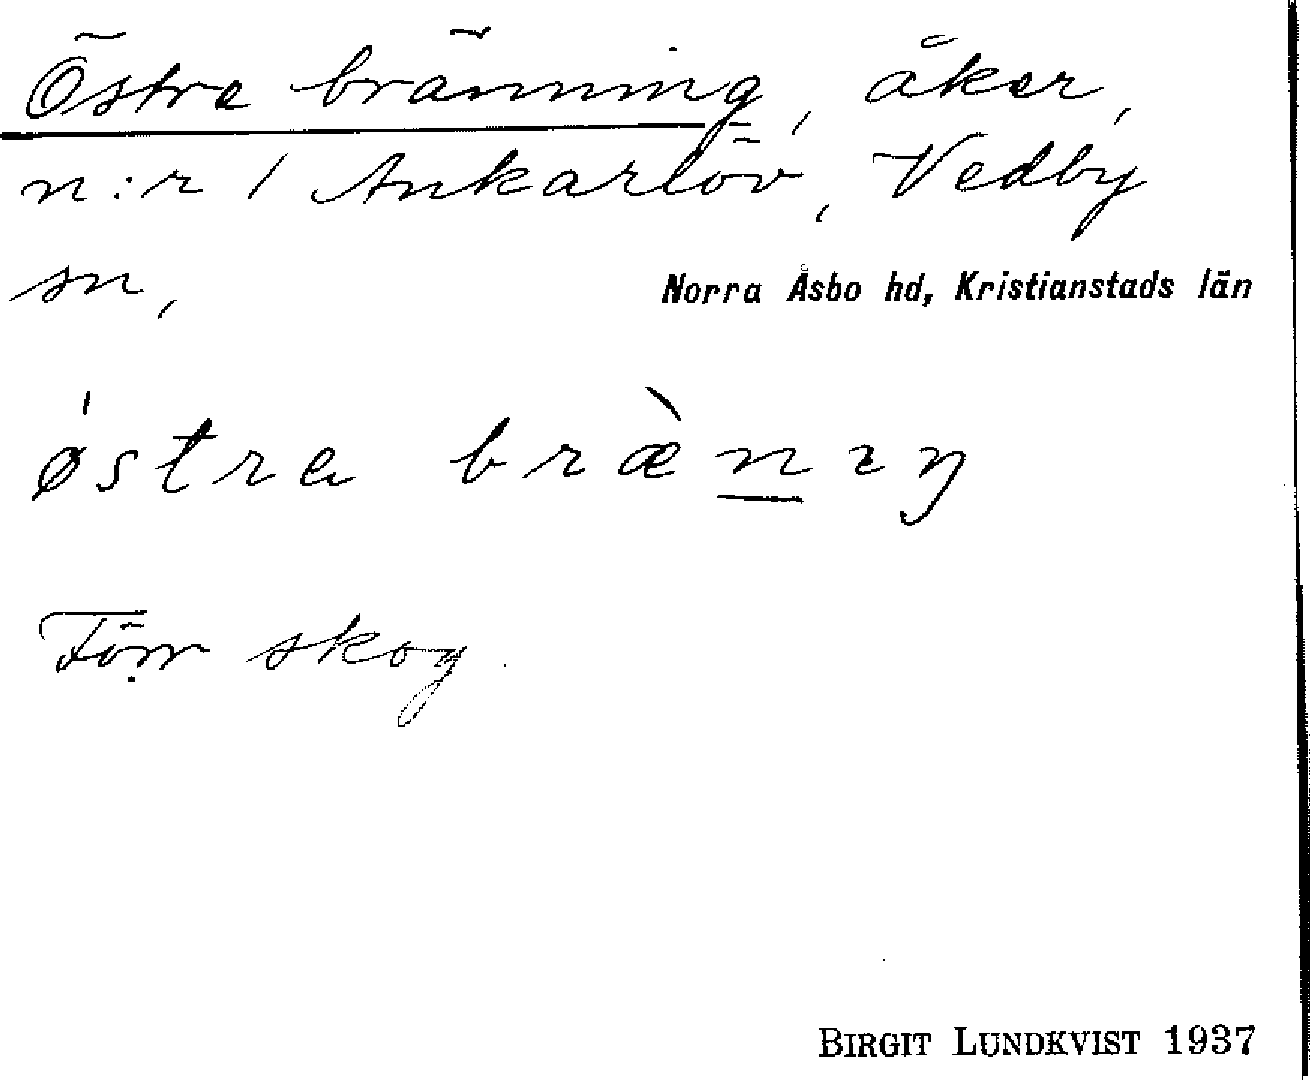 Östre bränning, åker,
n:r 1 Ankarlöv, Vedby
sn,
Norra Åsbo hd, Kristianstads län
østra bræ̀n̲ıŋ
Förr skog.
BIRGIT LUNDKVIST 1937